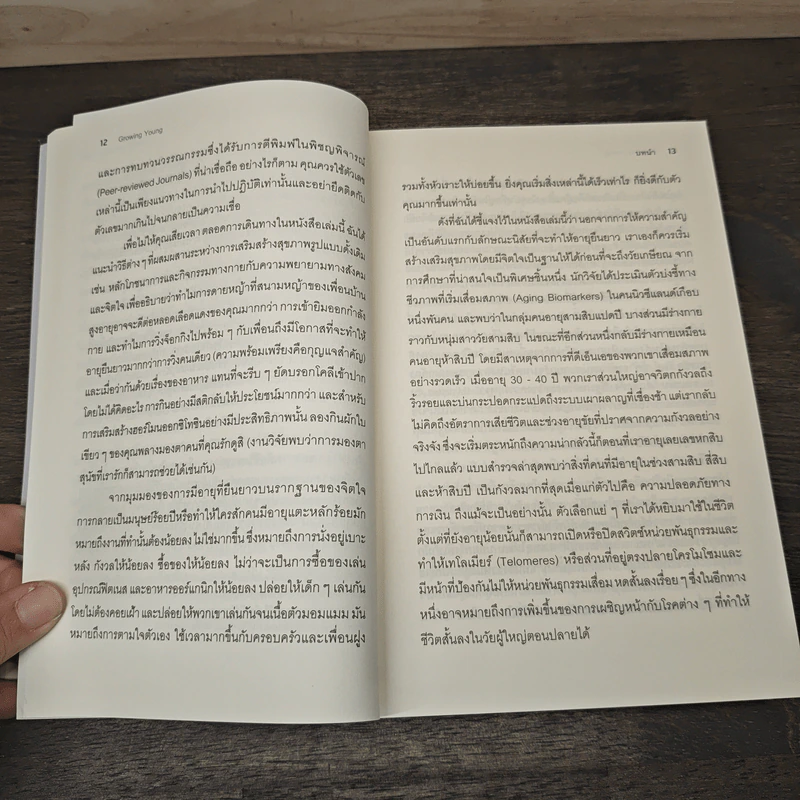 12 Growing Young
และการทบทวนวรรณกรรมซึ่งได้รับการตีพิมพ์ในพิชญพิจารณ์
(Peer-reviewed Journals) ที่น่าเชื่อถือ อย่างไรก็ตาม คุณควรใช้ตัวเลข
เหล่านี้เป็นเพียงแนวทางในการนำไปปฏิบัติเท่านั้นและอย่ายึดติดกับ
ตัวเลขมากเกินไปจนกลายเป็นความเชื่อ
เพื่อไม่ให้คุณเสียเวลา ตลอดการเดินทางในหนังสือเล่มนี้ ฉันได้
แนะนำวิธีต่าง ๆ ที่ผสมผสานระหว่างการเสริมสร้างสุขภาพรูปแบบดั้งเดิม
เช่น หลักโภชนาการและกิจกรรมทางกายกับความพยายามทางสังคม
และจิตใจ เพื่ออธิบายว่าทำไมการดายหญ้าที่สนามหญ้าของเพื่อนบ้าน
สูงอายุอาจจะดีต่อหลอดเลือดแดงของคุณมากกว่า การเข้ายิมออกกำลัง
กาย และทำไมการวิ่งจ็อกกิงไปพร้อม ๆ กับเพื่อนถึงมีโอกาสที่จะทำให้
อายุยืนยาวมากกว่าการวิ่งคนเดียว (ความพร้อมเพรียงคือกุญแจสำคัญ)
และเมื่อว่ากันด้วยเรื่องของอาหาร แทนที่จะรีบ ๆ ยัดบรอกโคลีเข้าปาก
โดยไม่ได้คิดอะไร การกินอย่างมีสติกลับให้ประโยชน์มากกว่า และสำหรับ
การเสริมสร้างฮอร์โมนออกซิโทซินอย่างมีประสิทธิภาพนั้น ลองกินผักใบ
เขียว ๆ ของคุณพลางมองตาคนที่คุณรักดูสิ (งานวิจัยพบว่าการมองตา
สุนัขที่เรารักก็สามารถช่วยได้เช่นกัน)
จากมุมมองของการมีอายุที่ยืนยาวบนรากฐานของจิตใจ
การกลายเป็นมนุษย์ร้อยปีหรือทำให้ใครสักคนมีอายุแตะหลักร้อยมัก
หมายถึงงานที่ทำนั้นต้องน้อยลง ไม่ใช่มากขึ้น ซึ่งหมายถึงการนั่งอยู่เบาะ
หลัง กังวลให้น้อยลง ซื้อของให้น้อยลง ไม่ว่าจะเป็นการซื้อของเล่น
อุปกรณ์ฟิตเนส และอาหารออร์แกนิกให้น้อยลง ปล่อยให้เด็ก ๆ เล่นกัน
โดยไม่ต้องคอยเฝ้า และปล่อยให้พวกเขาเล่นกันจนเนื้อตัวมอมแมม มัน
หมายถึงการตามใจตัวเอง ใช้เวลามากขึ้นกับครอบครัวและเพื่อนฝูง
บทนำ 13
รวมทั้งหัวเราะให้บ่อยขึ้น ยิ่งคุณเริ่มสิ่งเหล่านี้ได้เร็วเท่าไร ก็ยิ่งดีกับตัว
คุณมากขึ้นเท่านั้น
ดังที่ฉันได้ชี้แจงไว้ในหนังสือเล่มนี้ว่า นอกจากการให้ความสำคัญ
เป็นอันดับแรกกับลักษณะนิสัยที่จะทำให้อายุยืนยาว เราเองก็ควรเริ่ม
สร้างเสริมสุขภาพโดยมีจิตใจเป็นฐานให้ได้ก่อนที่จะถึงวัยเกษียณ จาก
การศึกษาที่น่าสนใจเป็นพิเศษชิ้นหนึ่ง นักวิจัยได้ประเมินตัวบ่งชี้ทาง
ชีวภาพที่เริ่มเสื่อมสภาพ (Aging Biomarkers) ในคนนิวซีแลนด์เกือบ
หนึ่งพันคน และพบว่าในกลุ่มคนอายุสามสิบแปดปี บางส่วนมีร่างกาย
ราวกับหนุ่มสาววัยสามสิบ ในขณะที่อีกส่วนหนึ่งกลับมีร่างกายเหมือน
คนอายุห้าสิบปี โดยมีสาเหตุจากการที่ดีเอ็นเอของพวกเขาเสื่อมสภาพ
อย่างรวดเร็ว เมื่ออายุ 30 - 40 ปี พวกเราส่วนใหญ่อาจวิตกกังวลถึง
ริ้วรอยและบ่นกระปอดกระแปดถึงระบบเผาผลาญที่เชื่องช้า แต่เรากลับ
ไม่คิดถึงอัตราการเสียชีวิตและช่วงอายุขัยที่ปราศจากความกังวลอย่าง
จริงจัง ซึ่งจะเริ่มตระหนักถึงความน่ากลัวนี้ก็ตอนที่เราอายุเลยเลขหกสิบ
ไปไกลแล้ว แบบสำรวจล่าสุดพบว่าสิ่งที่คนที่มีอายุในช่วงสามสิบ สี่สิบ
และห้าสิบปี เป็นกังวลมากที่สุดเมื่อแก่ตัวไปคือ ความปลอดภัยทาง
การเงิน ถึงแม้จะเป็นอย่างนั้น ตัวเลือกแย่ ๆ ที่เราได้หยิบมาใช้ในชีวิต
ตั้งแต่ที่ยังอายุน้อยนั้นก็สามารถเปิดหรือปิดสวิตช์หน่วยพันธุกรรมและ
ทำให้เทโลเมียร์ (Telomeres) หรือส่วนที่อยู่ตรงปลายโครโมโซมและ
มีหน้าที่ป้องกันไม่ให้หน่วยพันธุกรรมเสื่อม หดสั้นลงเรื่อย ๆ ซึ่งในอีกทาง
หนึ่งอาจหมายถึงการเพิ่มขึ้นของการเผชิญหน้ากับโรคต่าง ๆ ที่ทำให้
ชีวิตสั้นลงในวัยผู้ใหญ่ตอนปลายได้